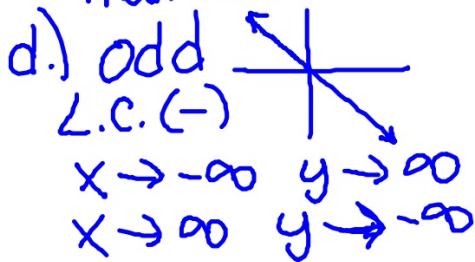 d.) odd
L.C. (-)
x → -∞ y → ∞
x → ∞ y → -∞